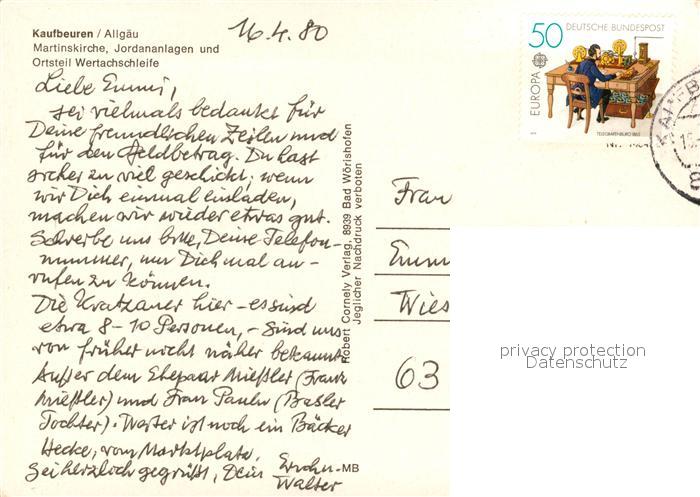 Kaufbeuren / Allgäu
Martinskirche, Jordananlagen und
Ortsteil Wertachschleife
16.4.80
Liebe Emmi,
sei vielmals bedankt für
Deine freundlichen Zeilen und
für den Geldbetrag. Du hast
sicher zu viel geschickt; wenn
wir Dich einmal einladen,
machen wir wieder etwas gut.
Schreibe uns bitte, Deine Telefon-
nummer, um Dich mal an-
rufen zu können.
Die Kratzauer hier – es sind
etwa 8–10 Personen, – sind uns
von früher nicht näher bekannt
Außer dem Ehepaar Mießler (Frank
Mießler) und Frau Paulu (Basler
Tochter). Weiter ist noch ein Bäcker
Hecke, vom Marktplatz.
Sei herzlich gegrüßt, Dein
Walter
MB
Robert Cornely Verlag, 8939 Bad Wörishofen
Jeglicher Nachdruck verboten
50 DEUTSCHE BUNDESPOST
EUROPA
TELEGRAFENBÜRO 1863
KAUFB
Frau
Emm
Wies
63
privacy protection
Datenschutz